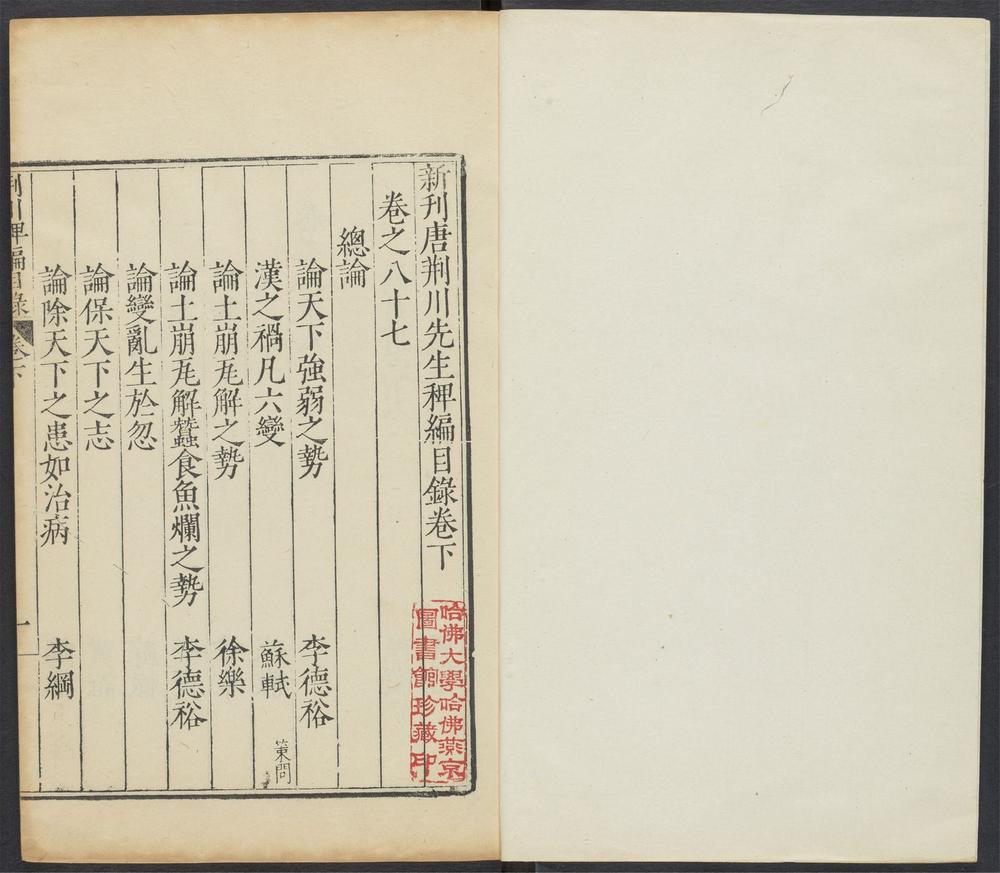 新刊唐荆川先生稗編目錄卷下
卷之八十七
總論
論天下強弱之勢 李德裕
漢之禍凡六變 蘇軾 策問
論土崩瓦解之勢 徐樂
論土崩瓦解蠶食魚爛之勢 李德裕
論變亂生於忽
論保天下之志
論除天下之患如治病 李綱
荆川稗編目錄 卷下 一
哈佛大學哈佛燕京
圖書館珍藏印